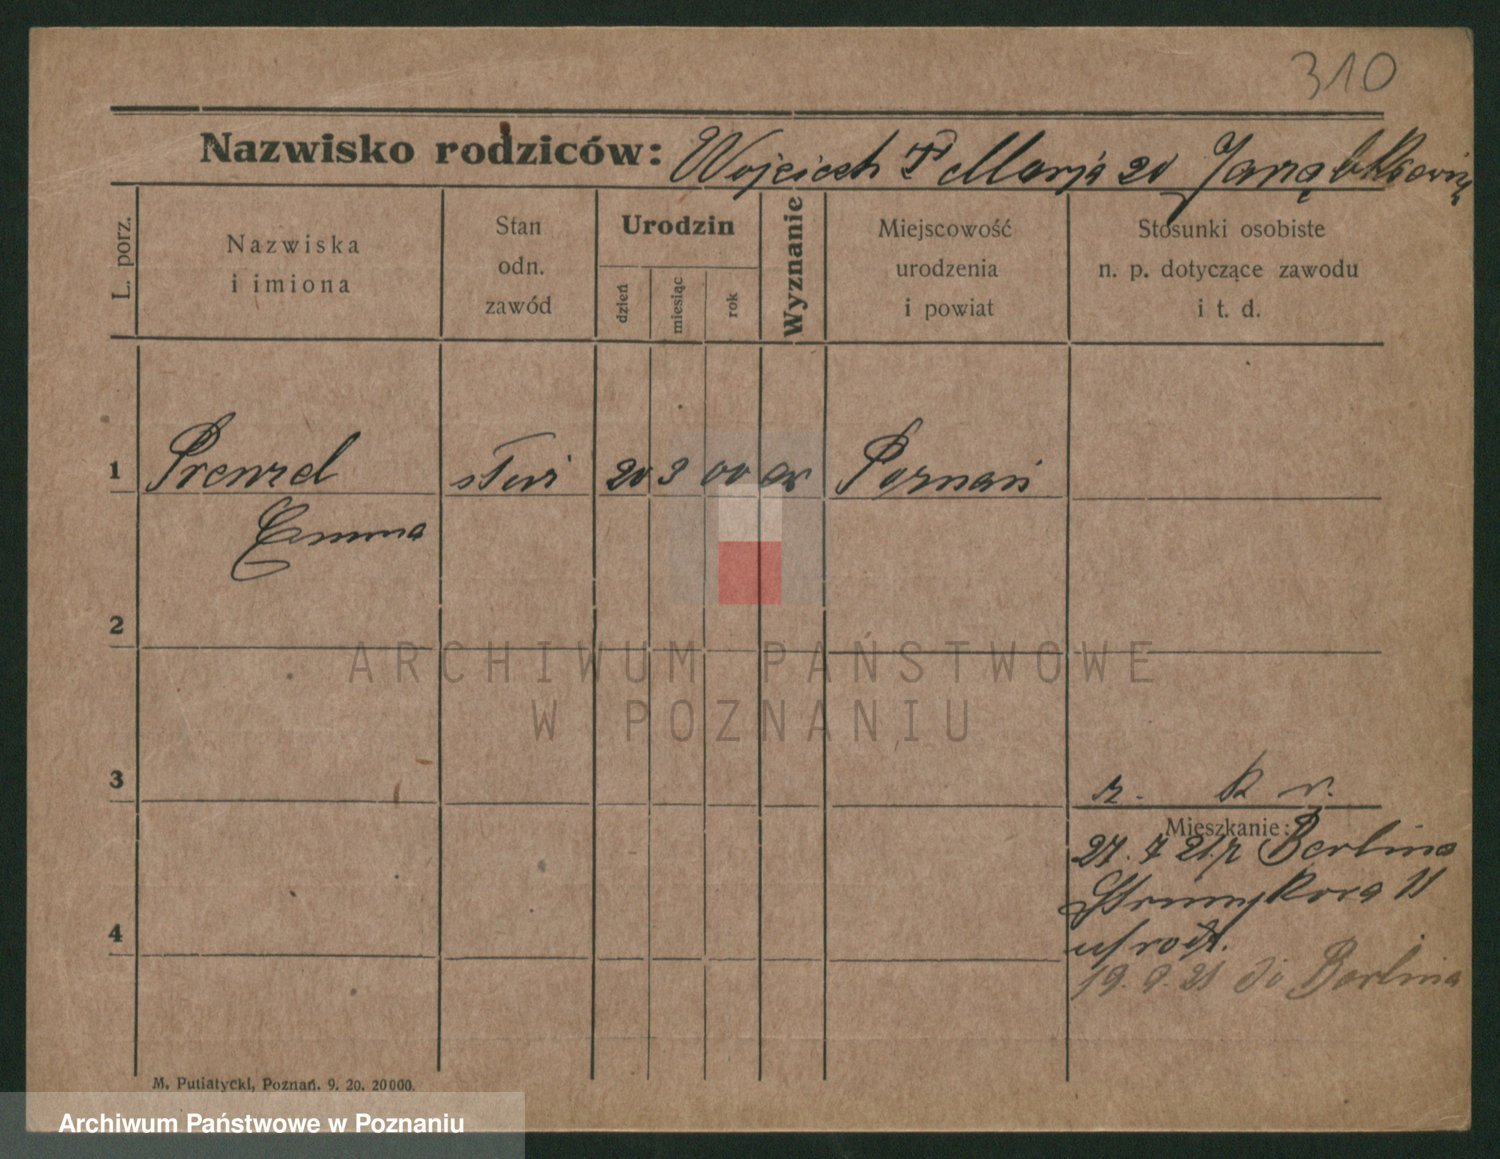 310
Nazwisko rodziców: Wojciech Marja zd Jarząbkowią
L. porz.
Nazwiska
i imiona
Stan
odn.
zawód
Urodzin
dzień
miesiąc
rok
Wyznanie
Miejscowość
urodzenia
i powiat
Stosunki osobiste
n. p. dotyczące zawodu
i t. d.
1 Prenzel 20 3 00 Poznań
Emma
2
ARCHIWUM PAŃSTWOWE
W POZNANIU
3
r. k v.
Mieszkanie:
27. 7 21. z Berlina
Strumykowa 11
u/rodz.
4
19. 9. 21 do Berlina
M. Putiatycki, Poznań. 9. 20. 20000.
Archiwum Państwowe w Poznaniu